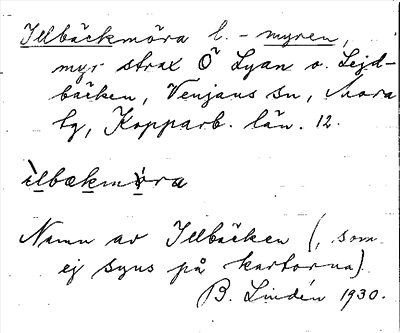 Illbäckmöra l. - myren,
myr strax Ö Lyan o. Lejd-
bäcken, Venjans sn, Mora
tg, Kopparb. län. 12.
ìlbækmóra
Namn av Illbäcken (, som
ej syns på kartorna).
B. Lindén 1930.